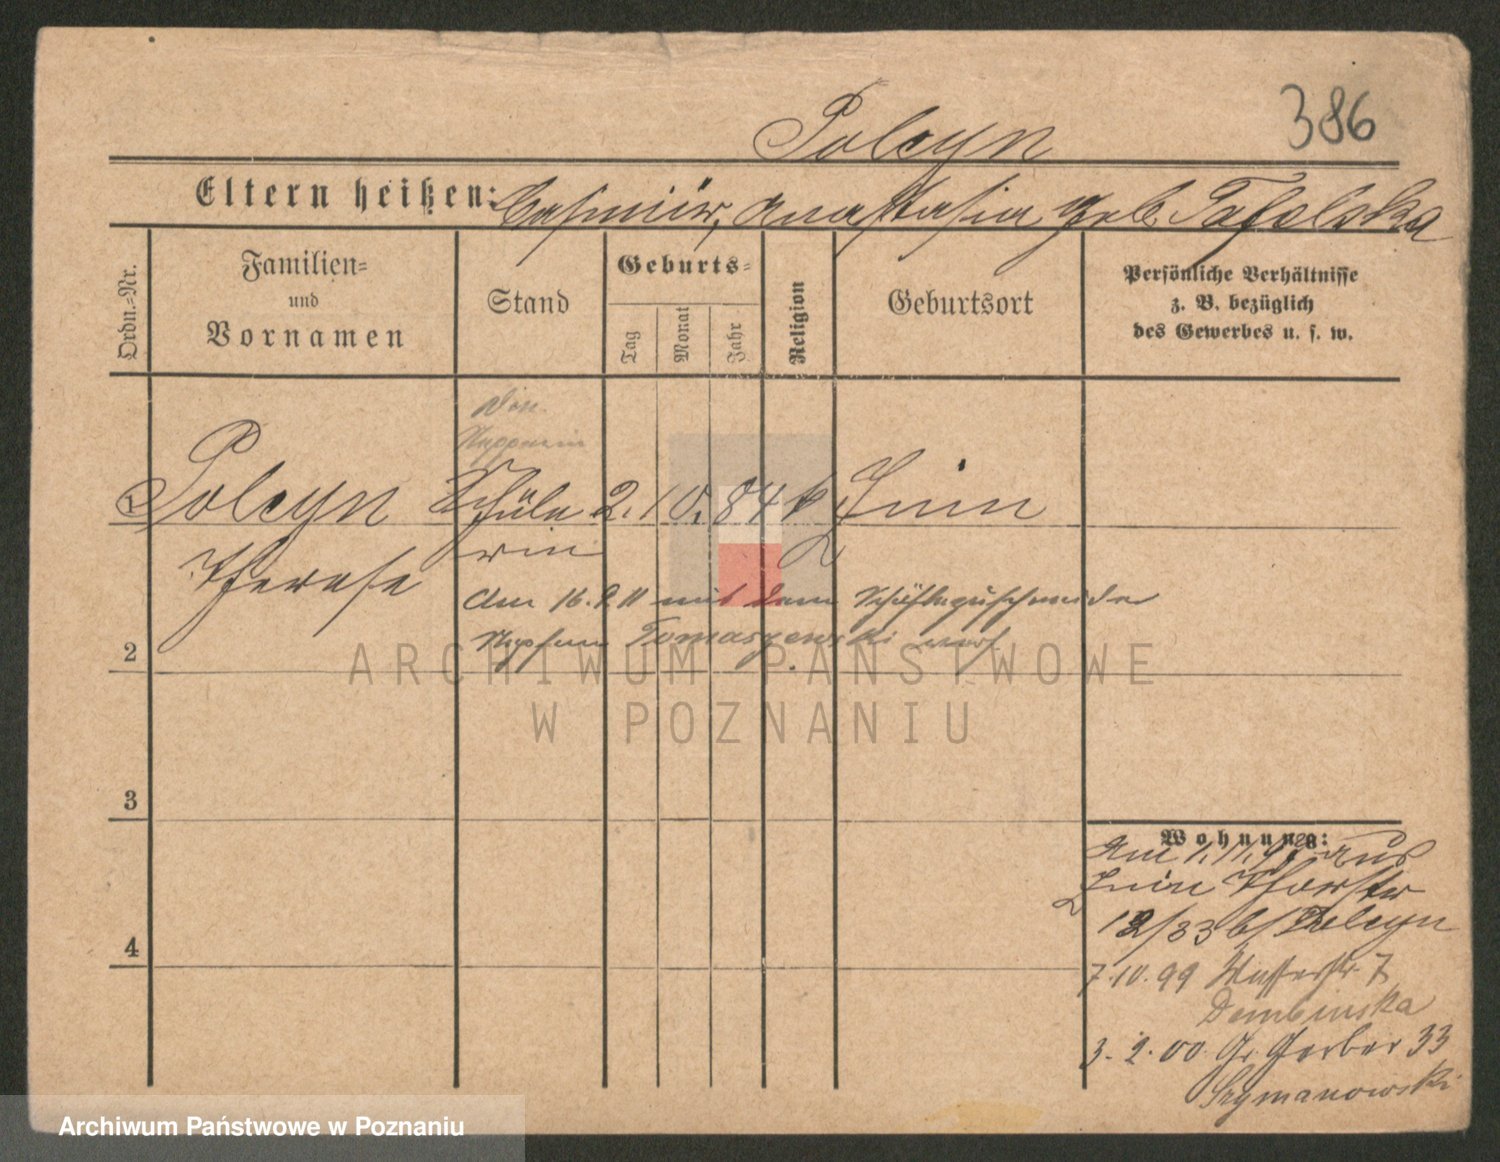 386
Polcyn
Eltern heißen: Casimir, Anastasia geb. Tafelska
Ordn.-Nr.
Familien-
und
Vornamen
Stand
Geburts-
Tag
Monat
Jahr
Religion
Geburtsort
Persönliche Verhältnisse
z. B. bezüglich
des Gewerbes u. s. w.
1 Polcyn Schüle 2. 10. 84 k Znin
Therese rin
Am 16. 2 11 mit dem
Tomaszewski verh
2
3
4
Wohnung:
Am 1. 11. 98 aus
Znin
12/33 b/ Polcyn
7. 10. 99 Wasserstr. 7
Dembinska
3. 2. 00 Gr. Gerber 33
Szymanowski
ARCHIWUM PAŃSTWOWE
W POZNANIU
Archiwum Państwowe w Poznaniu